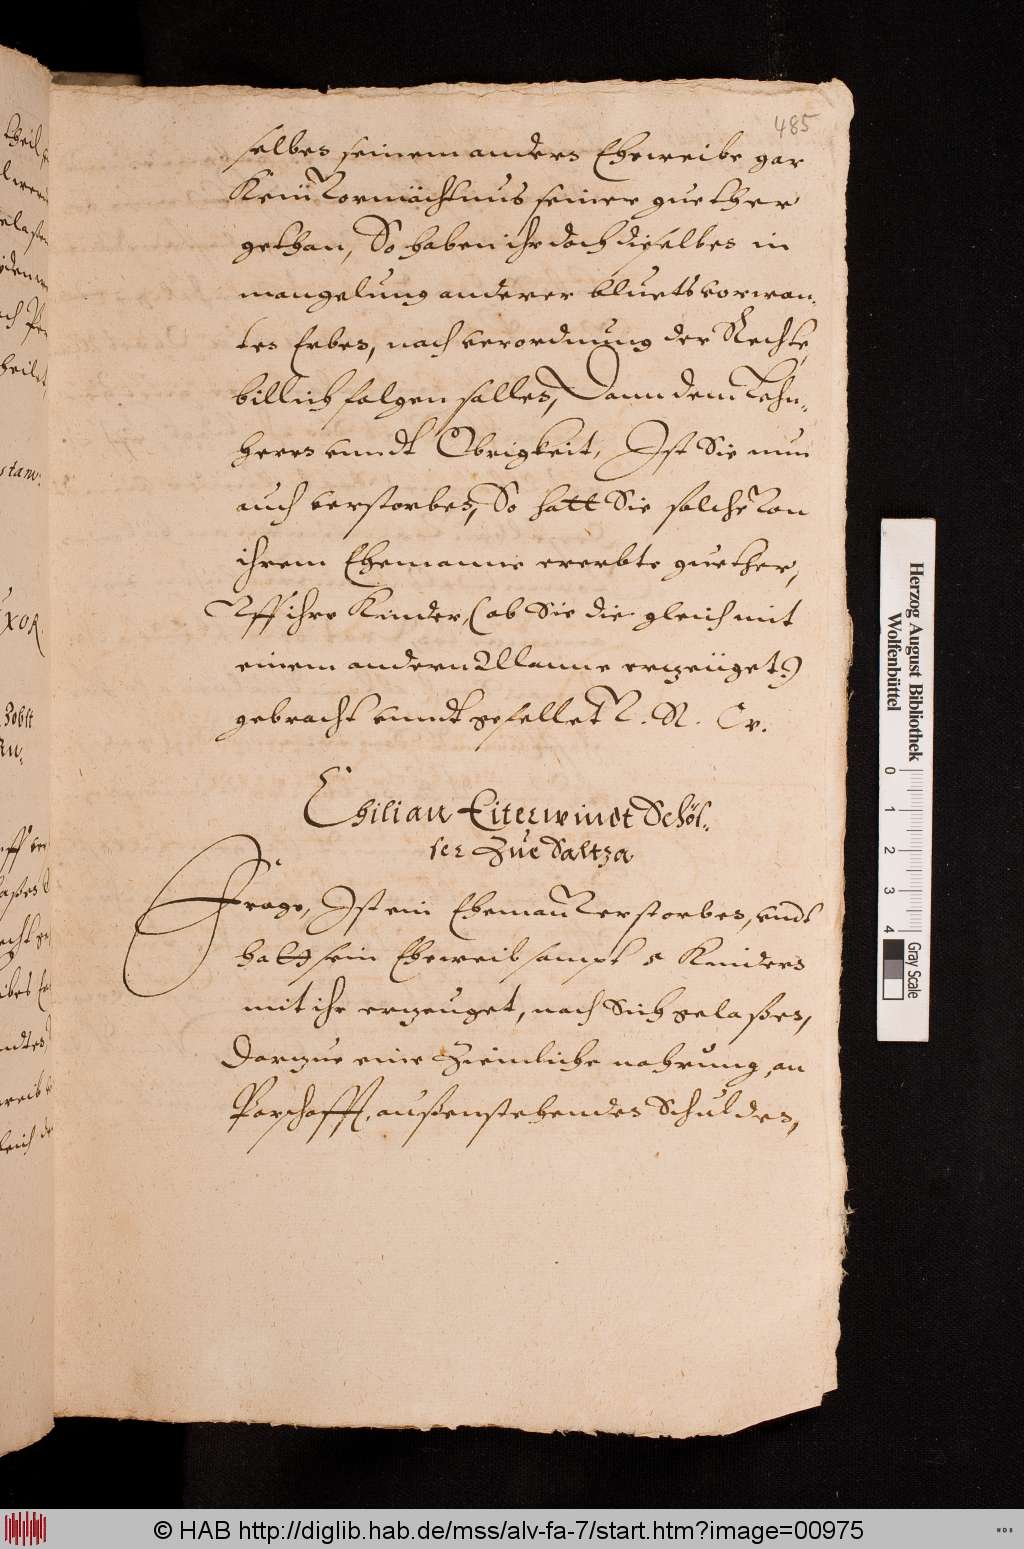 485
selbes seinem anders Eheweibe gar
Kein Vormächtnus seiner guether
gethan, So haben ihr doch dieselbes in
mangelung anderer bluetsvorwan-
tes Erbes, nach verordnung der Rechte,
billich folgen solles, Dann dem Lehn-
heres unndt Obrigkeit, Ist Sie nun
auch verstorbes, So hatt Sie solche Von
ihrem Ehemanne ererbte guether,
Uff ihre Kinder, (ob Sie die gleich mit
einem andern Manne erzeüget.)
gebracht unndt gefellet V. R. W.
Chilian Eiterwindt Schös-
ser Zue Saltza
Frage, Ist ein Eheman Verstorbes, undt
hatt sein Eheweib sampt 5 Kinders
mit ihr erzeuget, nach Sich gelaßes,
Darzue eine Ziemliche nahrung, an
Parschafft, außenstehendes Schuldes,
theil
stanv.
UXOR.
Zobst
Herzog August Bibliothek
Wolfenbüttel
0 1 2 3 4
Gray Scale
© HAB http://diglib.hab.de/mss/alv-fa-7/start.htm?image=00975